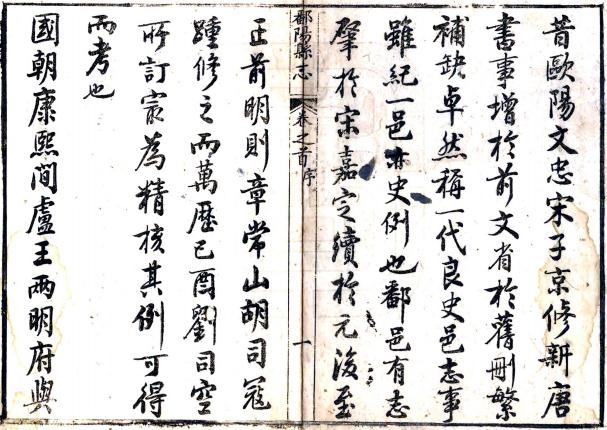 昔歐陽文忠宋子京修新唐
書事增於前文省於舊刪繁
補缺卓然稱一代良史邑志事
雖紀一邑亦史例也鄱邑有志
肇於宋嘉定續於元後至
鄱陽縣志
卷之首序
一
正前明則章常山胡司寇
踵修之而萬歷己酉劉司空
所訂㝡為精核其例可得
而考也
國朝康熙間盧王兩明府與